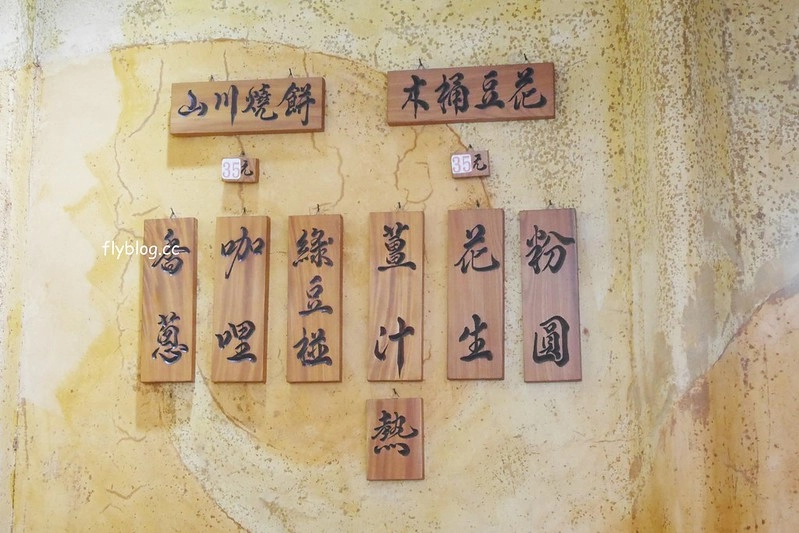 山川燒餅
35元
香蔥
咖哩
綠豆椪
木桶豆花
35元
薑汁
熱
花生
粉圓
flyblog.cc